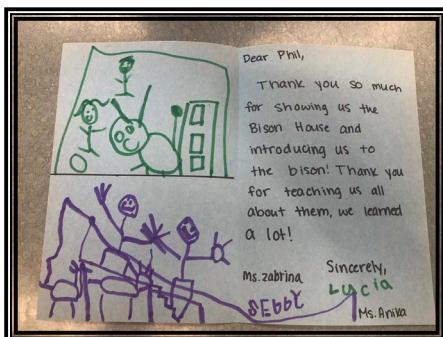 Dear Phil,
Thank you so much
for showing us the
Bison House and
introducing us to
the bison! Thank you
for teaching us all
about them, we learned
a lot!
Sincerely,
Ms. Zabrina
Lucia
Ms. Anika